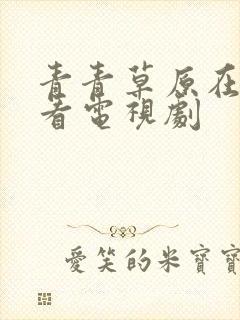 青青草原在
看電視劇
愛笑的米寶寶